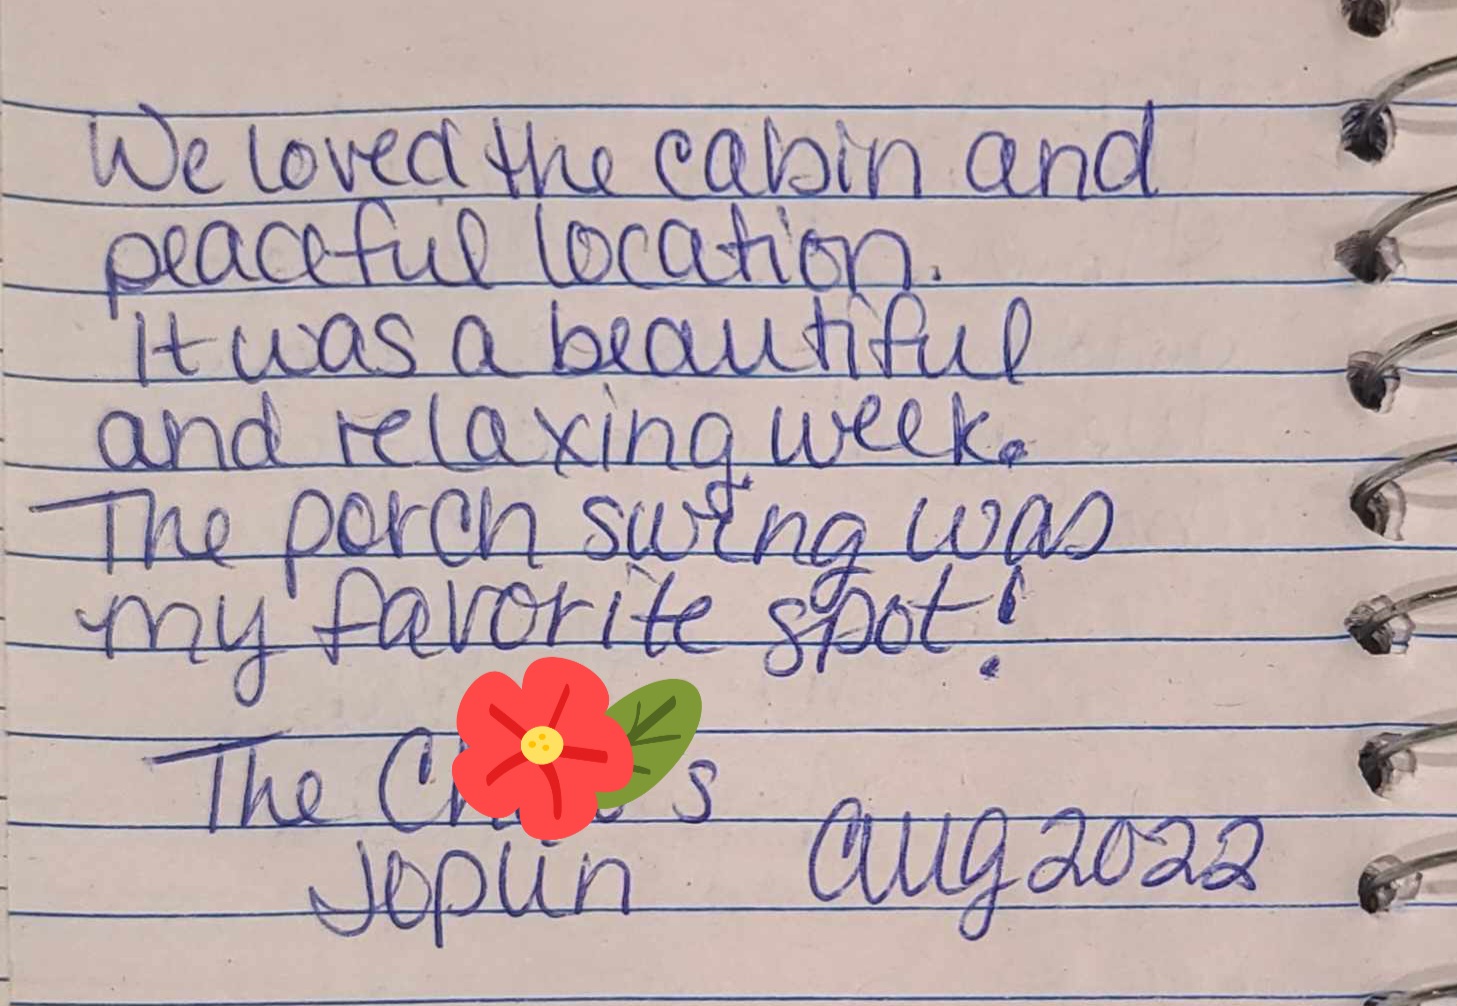 We loved the cabin and
peaceful location.
It was a beautiful
and relaxing week.
The porch swing was
my favorite spot!
The
Joplin Aug 2022